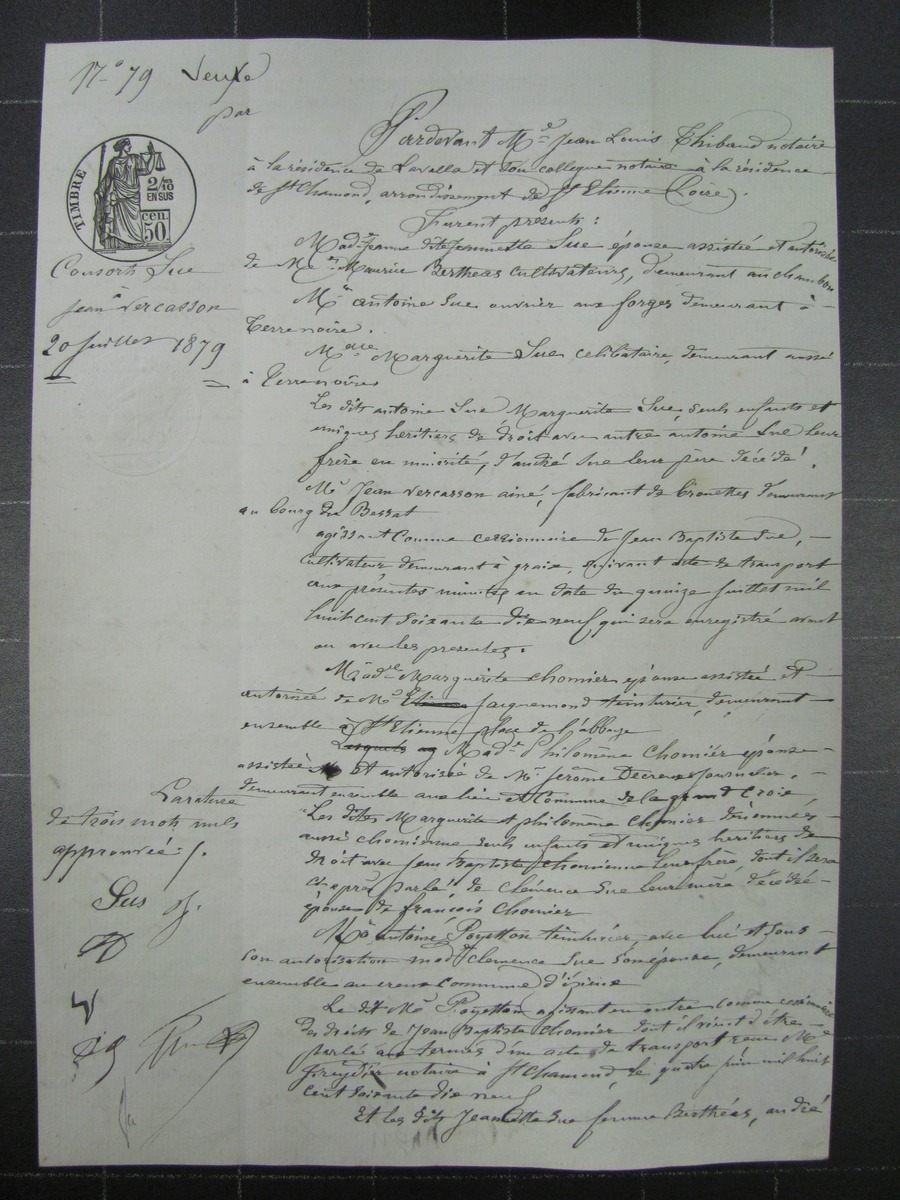 N° 79 Vente
par
TIMBRE
2/10
EN SUS
cen.
50
Consorts Sue
à
Jean Vercasson
20 Juillet 1879
Pardevant Me Jean Louis Thibaud notaire
à la résidence de Lavalla et son collègue notaire à la résidence
de St Chamond, arrondissement de St Etienne (Loire).
Furent présents :
Made Jeanne dite Jeannette Sue épouse assistée et autorisée
de Mr Maurice Berthéas cultivateurs, demeurant au chambon
Mr antoine Sue ouvrier aux forges demeurant à
Terrenoire.
Mdlle Marguerite Sue celibataire, demeurant aussi
à Terrenoire
Les dits antoine Sue Marguerite Sue, seuls enfants et
uniques heritiers de droit avec autre antoine Sue leur
frère en minorité, d'andré Sue leur père décédé.
Mr Jean Vercasson ainé, fabricant de brouettes demeurant
au bourg du Bessat
agissant comme cessionnaire de Jean Baptiste Sue,
cultivateur demeurant à graix, suivant acte de transport
aux présentes minutes en date du quinze juillet mil
huit cent soixante dix neuf, qui sera enregistré avant
ou avec les presentes.
Made Marguerite Chomier épouse assistée et
autorisée de Mr Etienne Jacquemond teinturier, demeurant
ensemble à St Etienne place de l'abbaye
Lesquels Made Philomène Chomier épouse
assistée et autorisée de Mr Jerome Decreux Journalier,
demeurant ensemble aux lieu et Commune de la grand Croix
Les dites Marguerite et philomène Chomier dénommées
aussi Chomienne seuls enfants et uniques heritiers de
droit avec Jean Baptiste Chomienne leur frère dont il sera
ci-après parlé de Clémence Sue leur mère décédée
épouse de françois Chomier
Mr antoine Poyetton teinturier, avec lui et sous
son autorisation made Clemence Sue son épouse, demeurant
ensemble au creux commune d'izieux
Le dit Mr Poyetton agissant en outre comme cessionnaire
des droits de Jean Baptiste Chomier dont il vient d'être
parlé aux termes d'un acte de transport reçu Me
notaire à St Chamond, le quatre juin mil huit
cent soixante dix neuf
Et les dits Jeannette Sue femme Berthéas, andré
La rature
de trois mots nuls
approuvée /.
Sue